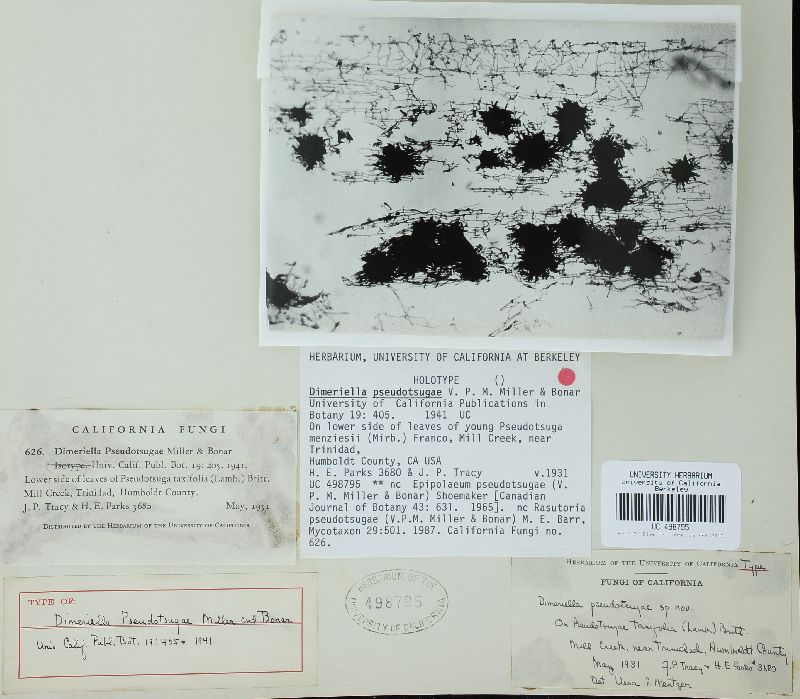 HERBARIUM, UNIVERSITY OF CALIFORNIA AT BERKELEY
HOLOTYPE ()
Dimeriella pseudotsugae V. P. M. Miller & Bonar
University of California Publications in
Botany 19: 405. 1941 UC
On lower side of leaves of young Pseudotsuga
menziesii (Mirb.) Franco, Mill Creek, near
Trinidad,
Humboldt County, CA USA
H. E. Parks 3680 & J. P. Tracy v.1931
UC 498795 ** nc Epipolaeum pseudotsugae (V.
P. M. Miller & Bonar) Shoemaker [Canadian
Journal of Botany 43: 631. 1965]. nc Rasutoria
pseudotsugae (V.P.M. Miller & Bonar) M. E. Barr,
Mycotaxon 29:501. 1987. California Fungi no.
626.
CALIFORNIA FUNGI
626. Dimeriella Pseudotsugae Miller & Bonar
Isotype. Univ. Calif. Publ. Bot. 19: 205. 1941.
Lower side of leaves of Pseudotsuga taxifolia (Lamb.) Britt.
Mill Creek, Trinidad, Humboldt County.
J. P. Tracy & H. E. Parks 3680 May, 1931
DISTRIBUTED BY THE HERBARIUM OF THE UNIVERSITY OF CALIFORNIA
UNIVERSITY HERBARIUM
University of California
Berkeley
UC 498795
TYPE OF:
Dimeriella Pseudotsugae Miller and Bonar
Univ. Calif. Publ. Bot. 19:405. 1941
HERBARIUM OF THE UNIVERSITY OF CALIFORNIA
498795
HERBARIUM OF THE UNIVERSITY OF CALIFORNIA Type
FUNGI OF CALIFORNIA
Dimeriella pseudotsugae sp nov.
On Pseudotsugae taxifolia (Lamb) Britt.
Mill Creek, near Trinidad, Humboldt County
May 1931 J.P Tracy & H.E Parks # 3680
Det Vera Mentzer